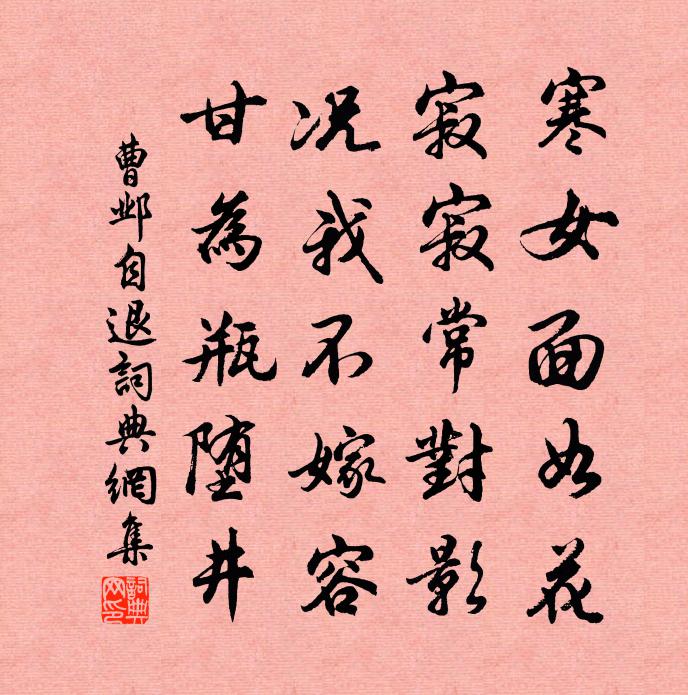 寒女面如花
寂寂常對影
况我不嫁容
甘為瓶墮井
曹邺自退詞典網集
詞典網印